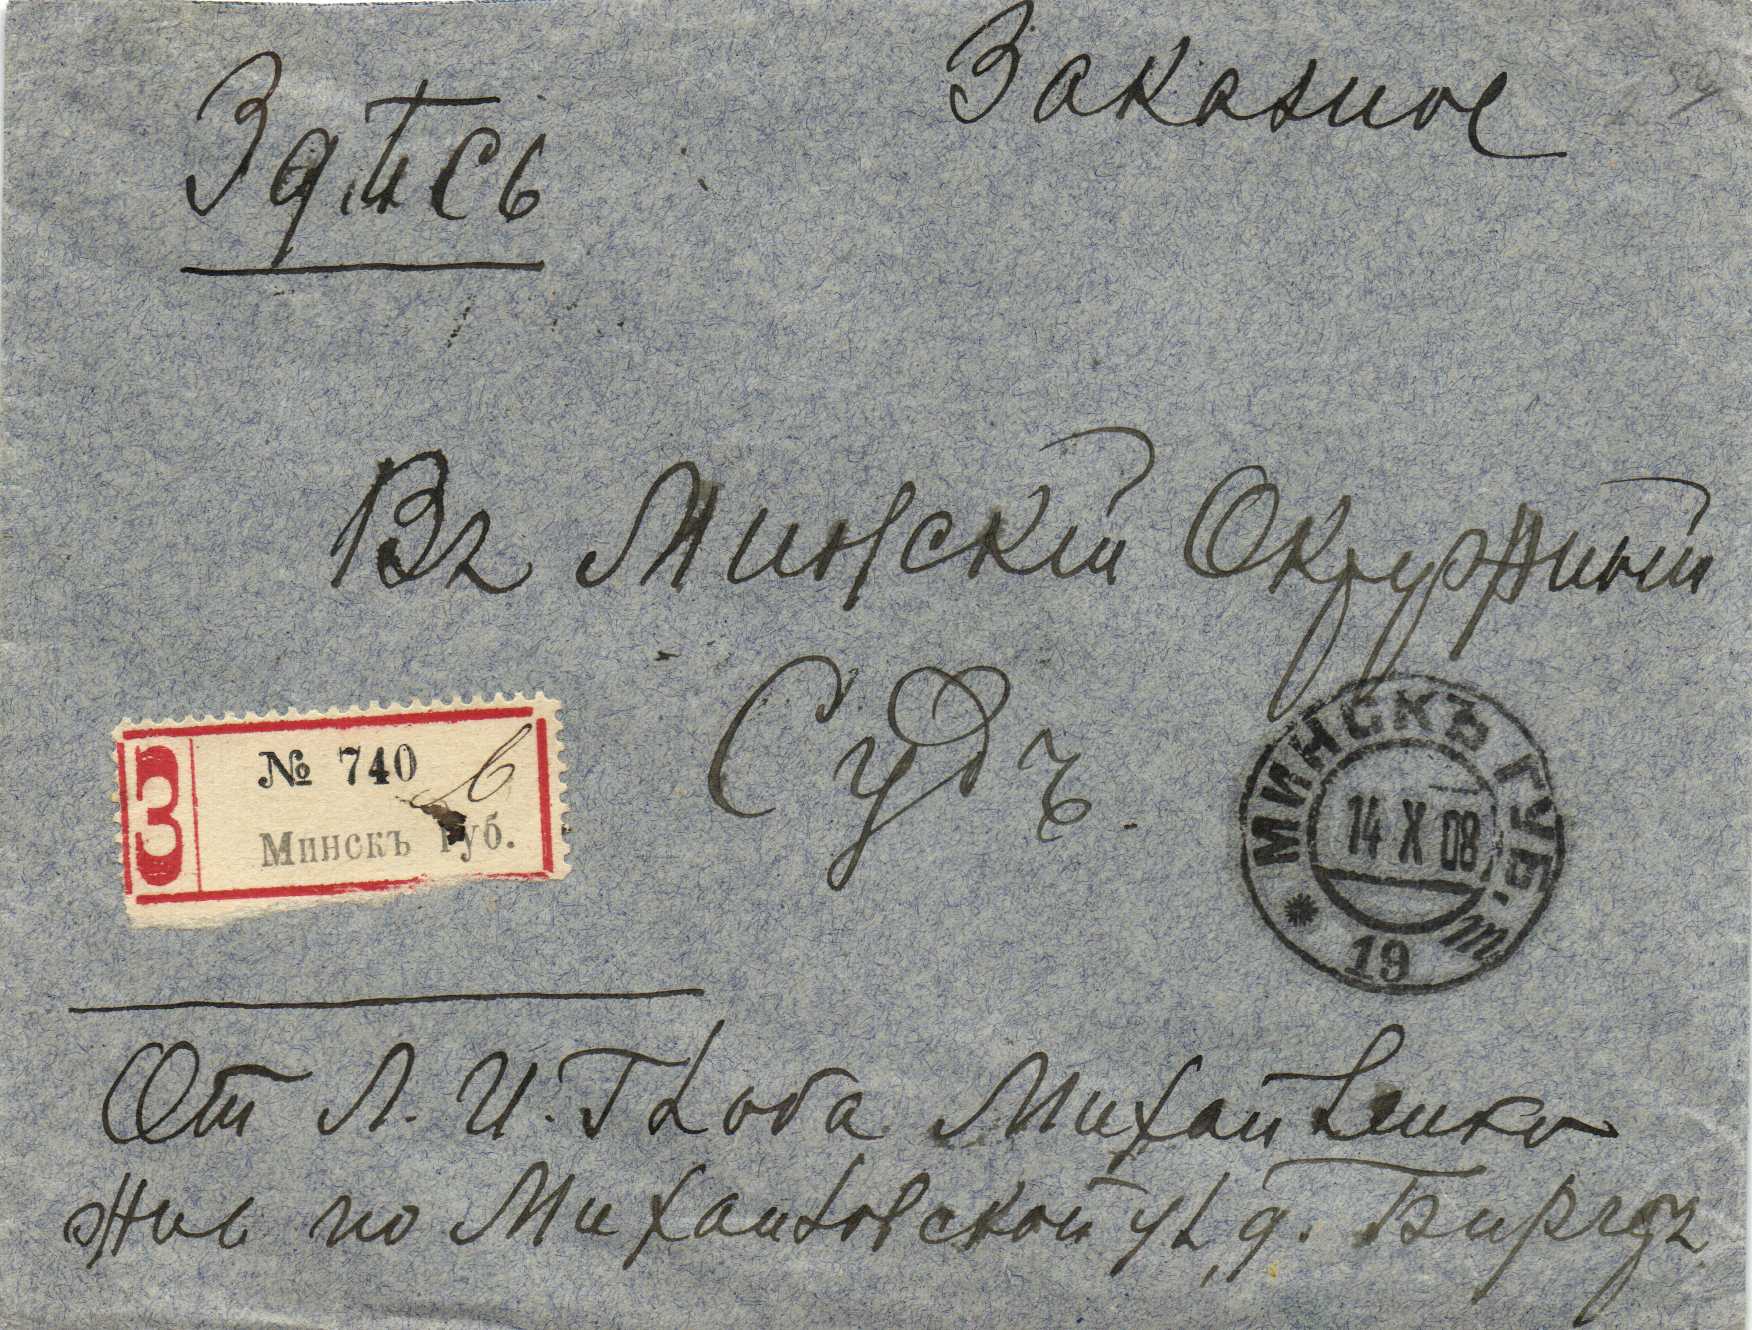 Здѣсь
Заказное
Въ Минскій Окружный
Судъ.
З
№ 740
Минскъ Губ.
МИНСКЪ ГУБ.
14 X 08
19
От Л. И. Михайленко
жив по Михайловской ул, д.